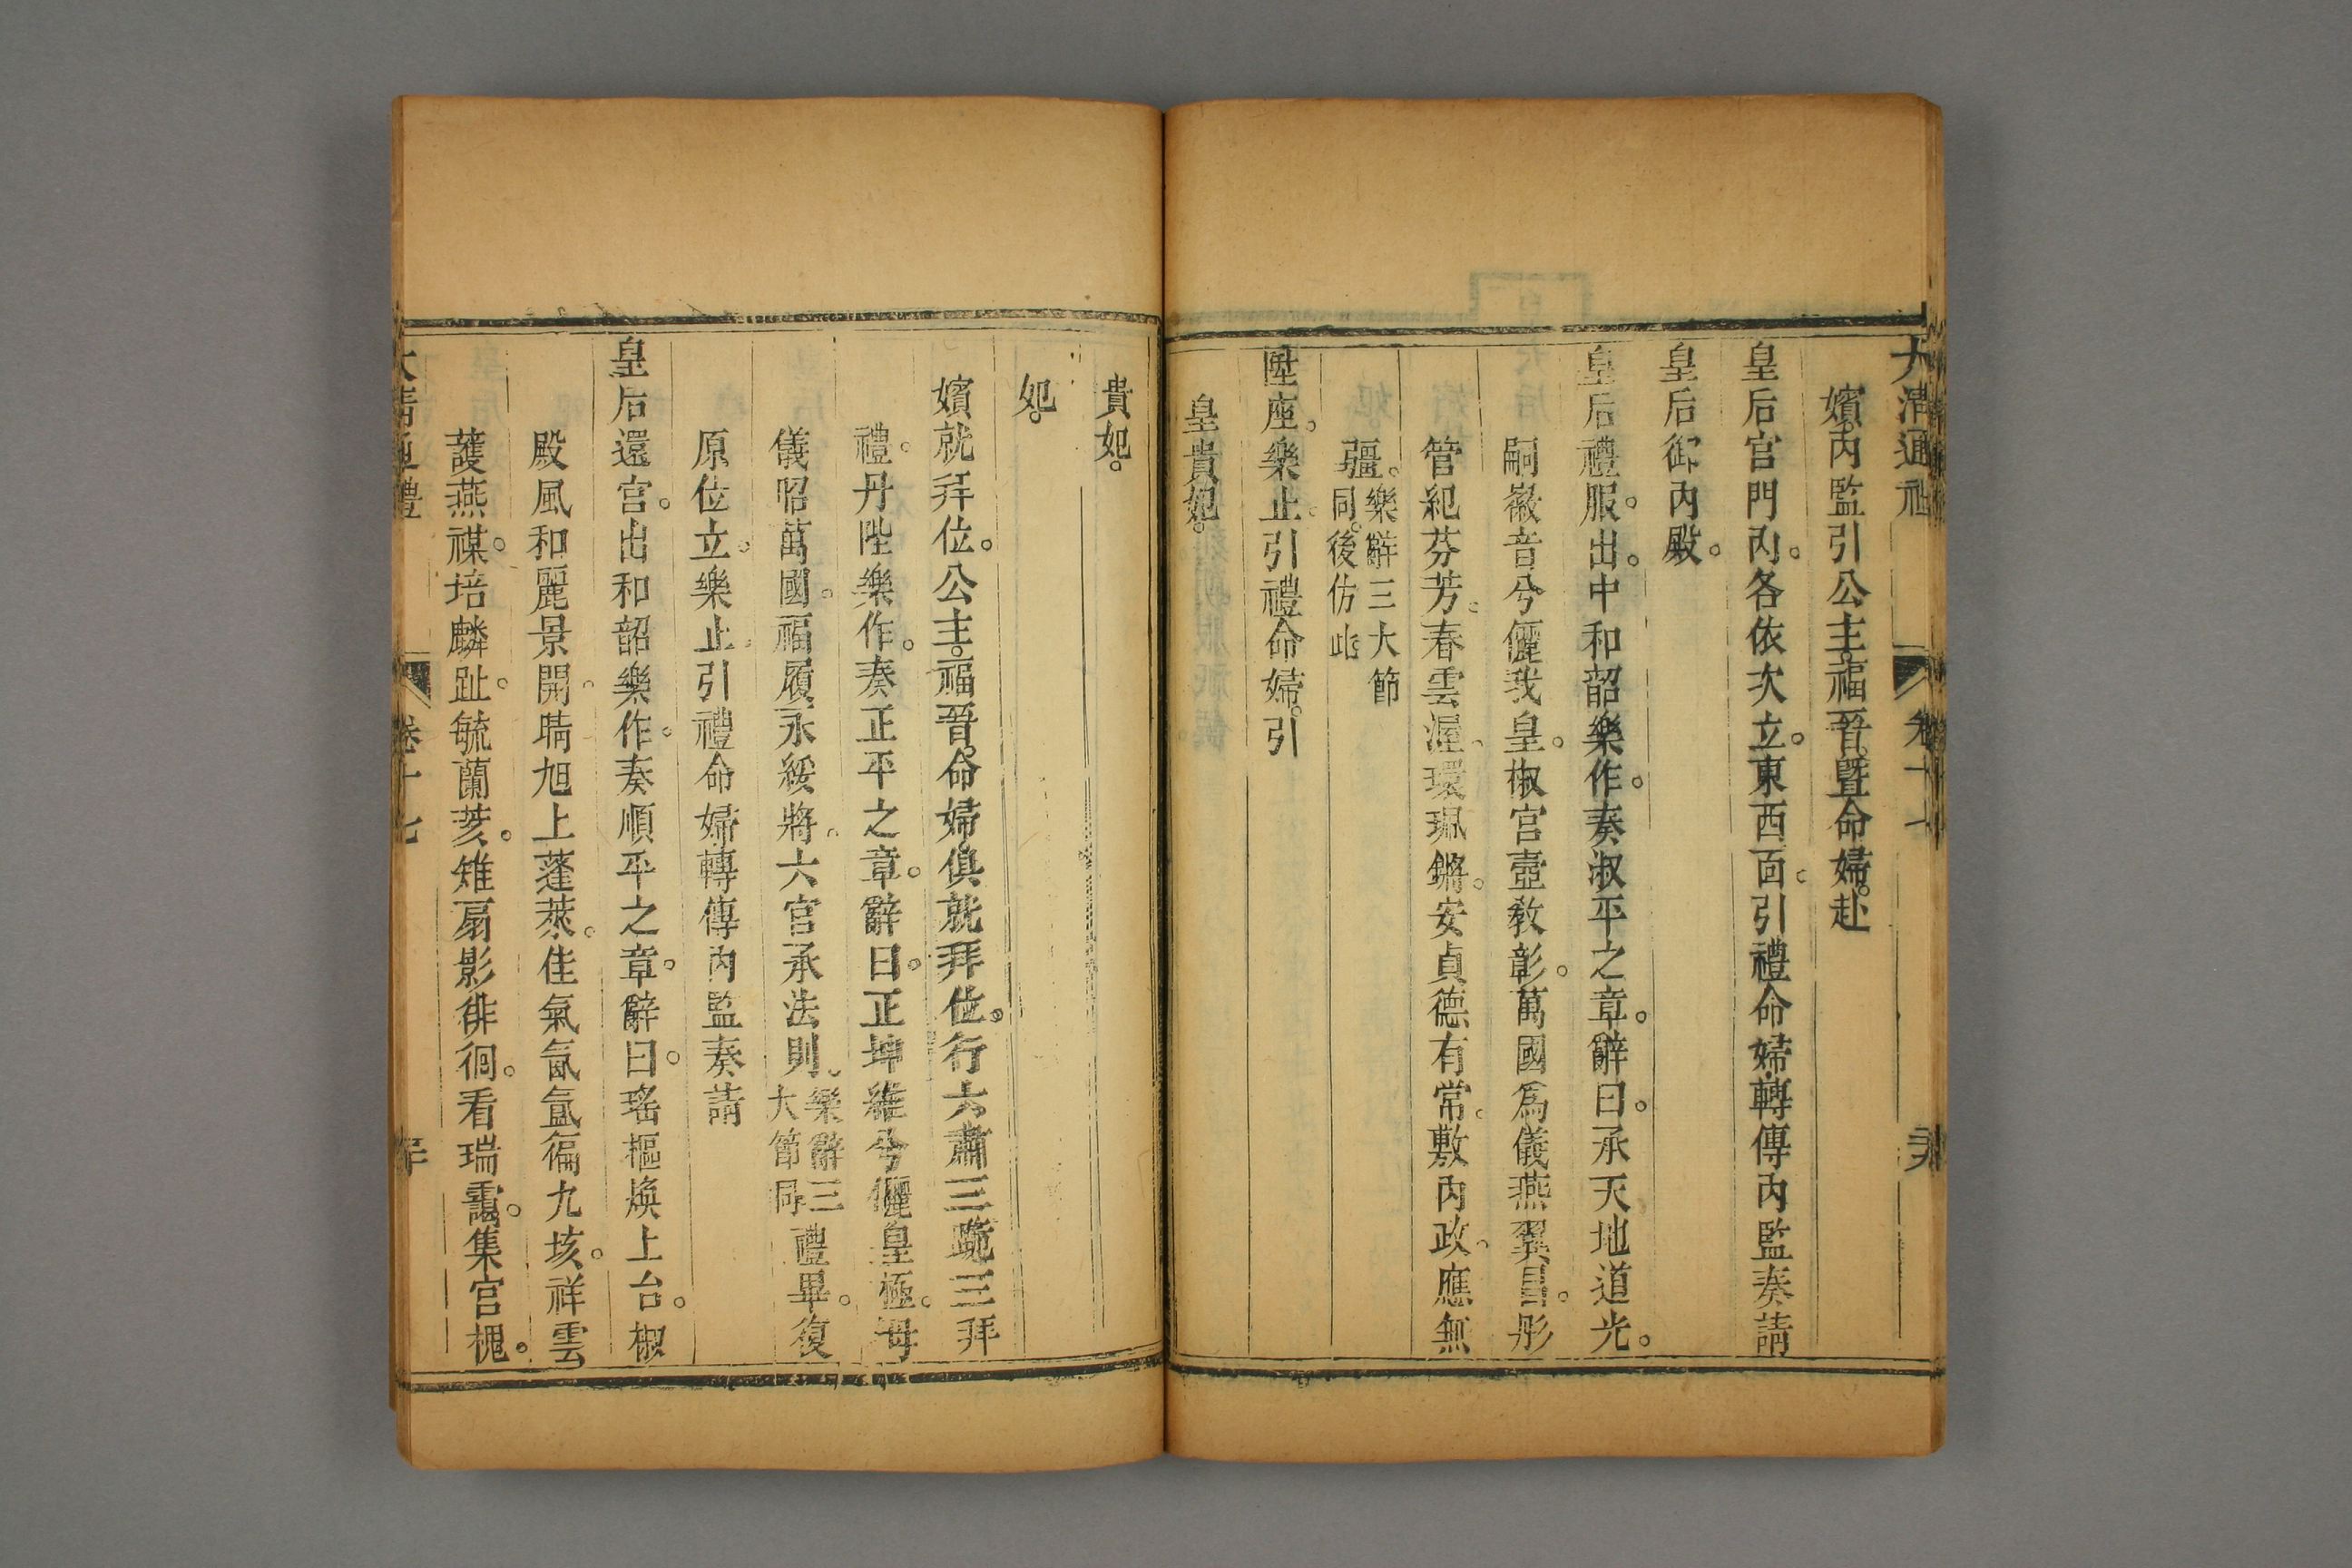 大清通禮 卷十七
嬪。內監引公主。福晉。曁命婦。赴
皇后宮門內。各依次立。東西面。引禮命婦。轉傳內監奏請
皇后御內殿。
皇后禮服。出。中和韶樂作。奏淑平之章。辭曰。承天地道光。
嗣徽音兮。儷我皇。椒宮壼教彰。萬國爲儀燕翼昌。彤
管紀芬芳。春雲渥。環珮鏘。安貞德有常。敷內政。應無
疆。樂辭三大節
同。後仿此
陞座。樂止。引禮命婦。引
皇貴妃。
貴妃。
妃。
嬪就拜位。公主。福晉。命婦。俱就拜位。行六肅三跪三拜
禮。丹陛樂作。奏正平之章。辭曰。正坤維兮。儷皇極。母
儀昭萬國。福履永綏將。六宮承法則。樂辭三
大節同禮畢。復
原位立。樂止。引禮命婦。轉傳內監奏請
皇后還宮。出和韶樂作。奏順平之章。辭曰。瑤樞煥上台。椒
殿風和麗景開。晴旭上蓬萊。佳氣氤氳徧九垓。祥雲
護燕禖。培麟趾。毓蘭荄。雉扇影徘徊。看瑞靄。集宮槐。
大清通禮 卷十七